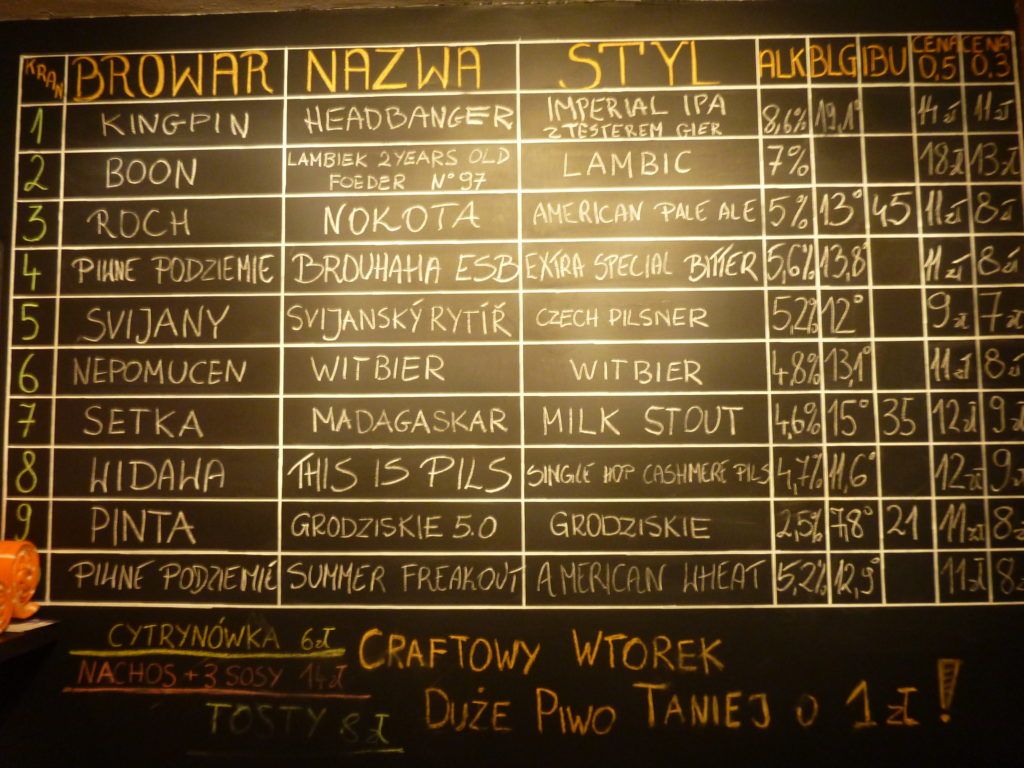 KRAN BROWAR NAZWA STYL ALK BLG IBU CENA 0,5 CENA 0,3
1 KINGPIN HEADBANGER IMPERIAL IPA Z TESTEREM GIER 8,6% 19,1° 14 zł 11 zł
2 BOON LAMBIEK 2 YEARS OLD FOEDER N°97 LAMBIC 7% 18 zł 13 zł
3 ROCH NOKOTA AMERICAN PALE ALE 5% 13° 45 11 zł 8 zł
4 PIWNE PODZIEMIE BROUHAHA ESB EXTRA SPECIAL BITTER 5,6% 13,8° 11 zł 8 zł
5 SVIJANY SVIJANSKÝ RYTÍŘ CZECH PILSNER 5,2% 12° 9 zł 7 zł
6 NEPOMUCEN WITBIER WITBIER 4,8% 13,1° 11 zł 8 zł
7 SETKA MADAGASKAR MILK STOUT 4,6% 15° 35 12 zł 9 zł
8 WIDAWA THIS IS PILS SINGLE HOP CASHMERE PILS 4,7% 11,6° 12 zł 9 zł
9 PINTA GRODZISKIE 5.0 GRODZISKIE 2,5% 7,8° 21 11 zł 8 zł
PIWNE PODZIEMIE SUMMER FREAKOUT AMERICAN WHEAT 5,2% 12,9° 11 zł 8
CYTRYNÓWKA 6 zł
NACHOS + 3 SOSY 14 zł
TOSTY 8 zł
CRAFTOWY WTOREK
DUŻE PIWO TANIEJ O 1 zł!